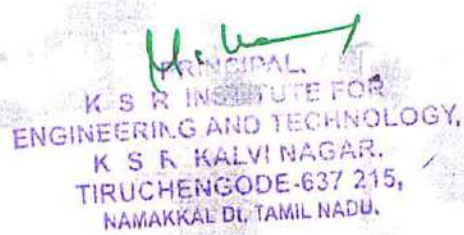 PRINCIPAL,
K S R INSTITUTE FOR
ENGINEERING AND TECHNOLOGY,
K S R KALVI NAGAR,
TIRUCHENGODE-637 215,
NAMAKKAL DI, TAMIL NADU.